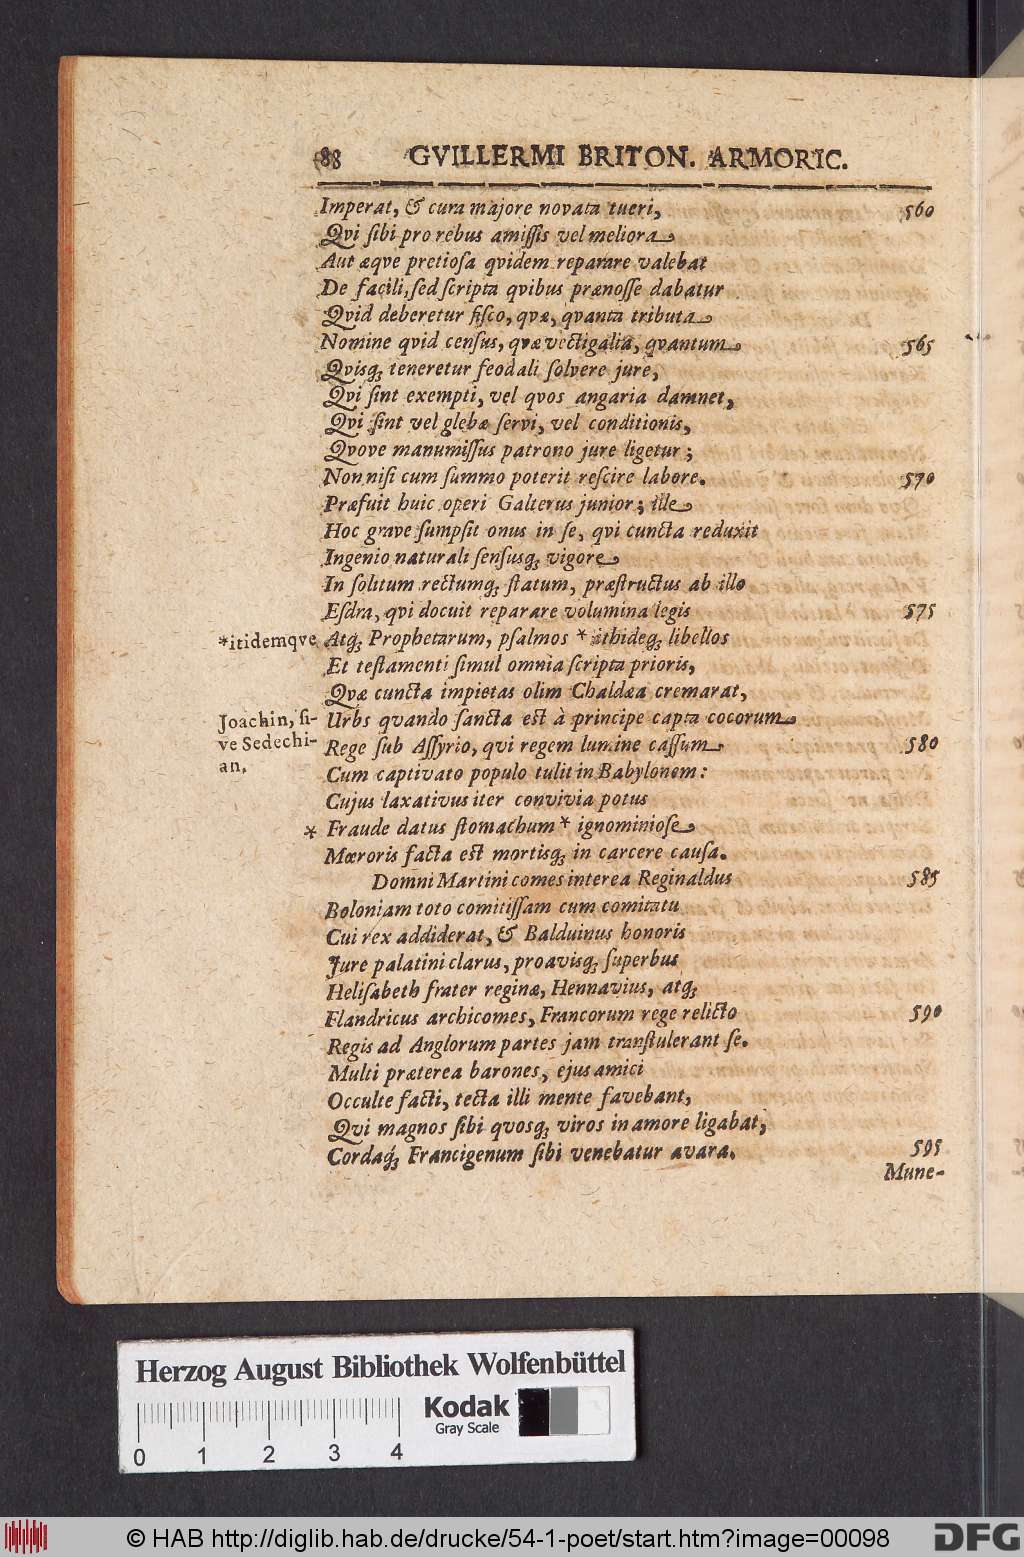 88 GVILLERMI BRITON. ARMORIC.
Imperat, & cura majore novata tueri, 560
Qvi sibi pro rebus amissis vel meliora
Aut æqve pretiosa qvidem reparare valebat
De facili, sed scripta qvibus prænosse dabatur
Qvid deberetur fisco, qvæ, qvanta tributa
Nomine qvid census, qvæ vectigalia, qvantum 565
Qvisq; teneretur feodali solvere jure,
Qvi sint exempti, vel qvos angaria damnet,
Qvi sint vel glebæ servi, vel conditionis,
Qvove manumissus patrono jure ligetur;
Non nisi cum summo poterit rescire labore. 570
Præfuit huic operi Galterus junior; ille
Hoc grave sumpsit onus in se, qvi cuncta reduxit
Ingenio naturali sensusq; vigore
In solitum rectumq; statum, præstructus ab illo
Esdra, qvi docuit reparare volumina legis 575
*itidemqve Atq; Prophetarum, psalmos * ithideq; libellos
Et testamenti simul omnia scripta prioris,
Qvæ cuncta impietas olim Chaldæa cremarat,
Joachin, si- Urbs qvando sancta est à principe capta cocorum
ve Sedechi- Rege sub Assyrio, qvi regem lumine cassum 580
an. Cum captivato populo tulit in Babylonem:
Cujus laxativus iter convivia potus
* Fraude datus stomachum * ignominiose
Mœroris facta est mortisq; in carcere causa.
Domni Martini comes interea Reginaldus 585
Boloniam toto comitissam cum comitatu
Cui rex addiderat, & Balduinus honoris
Jure palatini clarus, proavisq; superbus
Helisabeth frater reginæ, Hennavius, atq;
Flandricus archicomes, Francorum rege relicto 590
Regis ad Anglorum partes jam transtulerant se.
Multi præterea barones, ejus amici
Occulte facti, tecta illi mente favebant,
Qvi magnos sibi qvosq; viros in amore ligabat,
Cordaq; Francigenum sibi venebatur avara. 595
Mune-
Herzog August Bibliothek Wolfenbüttel
Kodak
Gray Scale
0 1 2 3 4
© HAB http://diglib.hab.de/drucke/54-1-poet/start.htm?image=00098 DFG